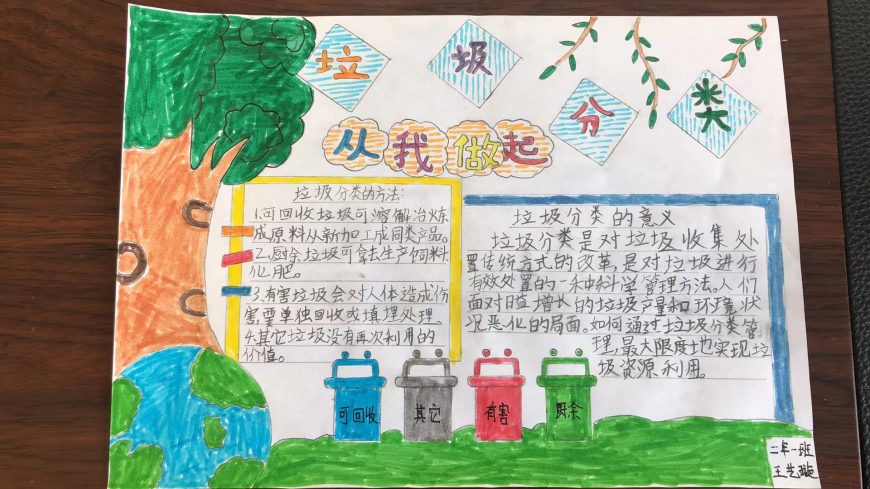 垃圾分类
从我做起
垃圾分类的方法:
1.可回收垃圾可溶解冶炼
成原料从新加工成同类产品。
2.厨余垃圾可拿去生产饲料
化肥。
3.有害垃圾会对人体造成伤
害需要单独回收或填埋处理。
4.其它垃圾没有再次利用的
价值。
垃圾分类的意义
垃圾分类是对垃圾收集处
置传统方式的改革,是对垃圾进行
有效处置的一种科学管理方法。人们
面对日益增长的垃圾产量和环境状
况恶化的局面。如何通过垃圾分类管
理,最大限度地实现垃
圾资源利用。
可回收
其它
有害
厨余
二年一班
王艺璇